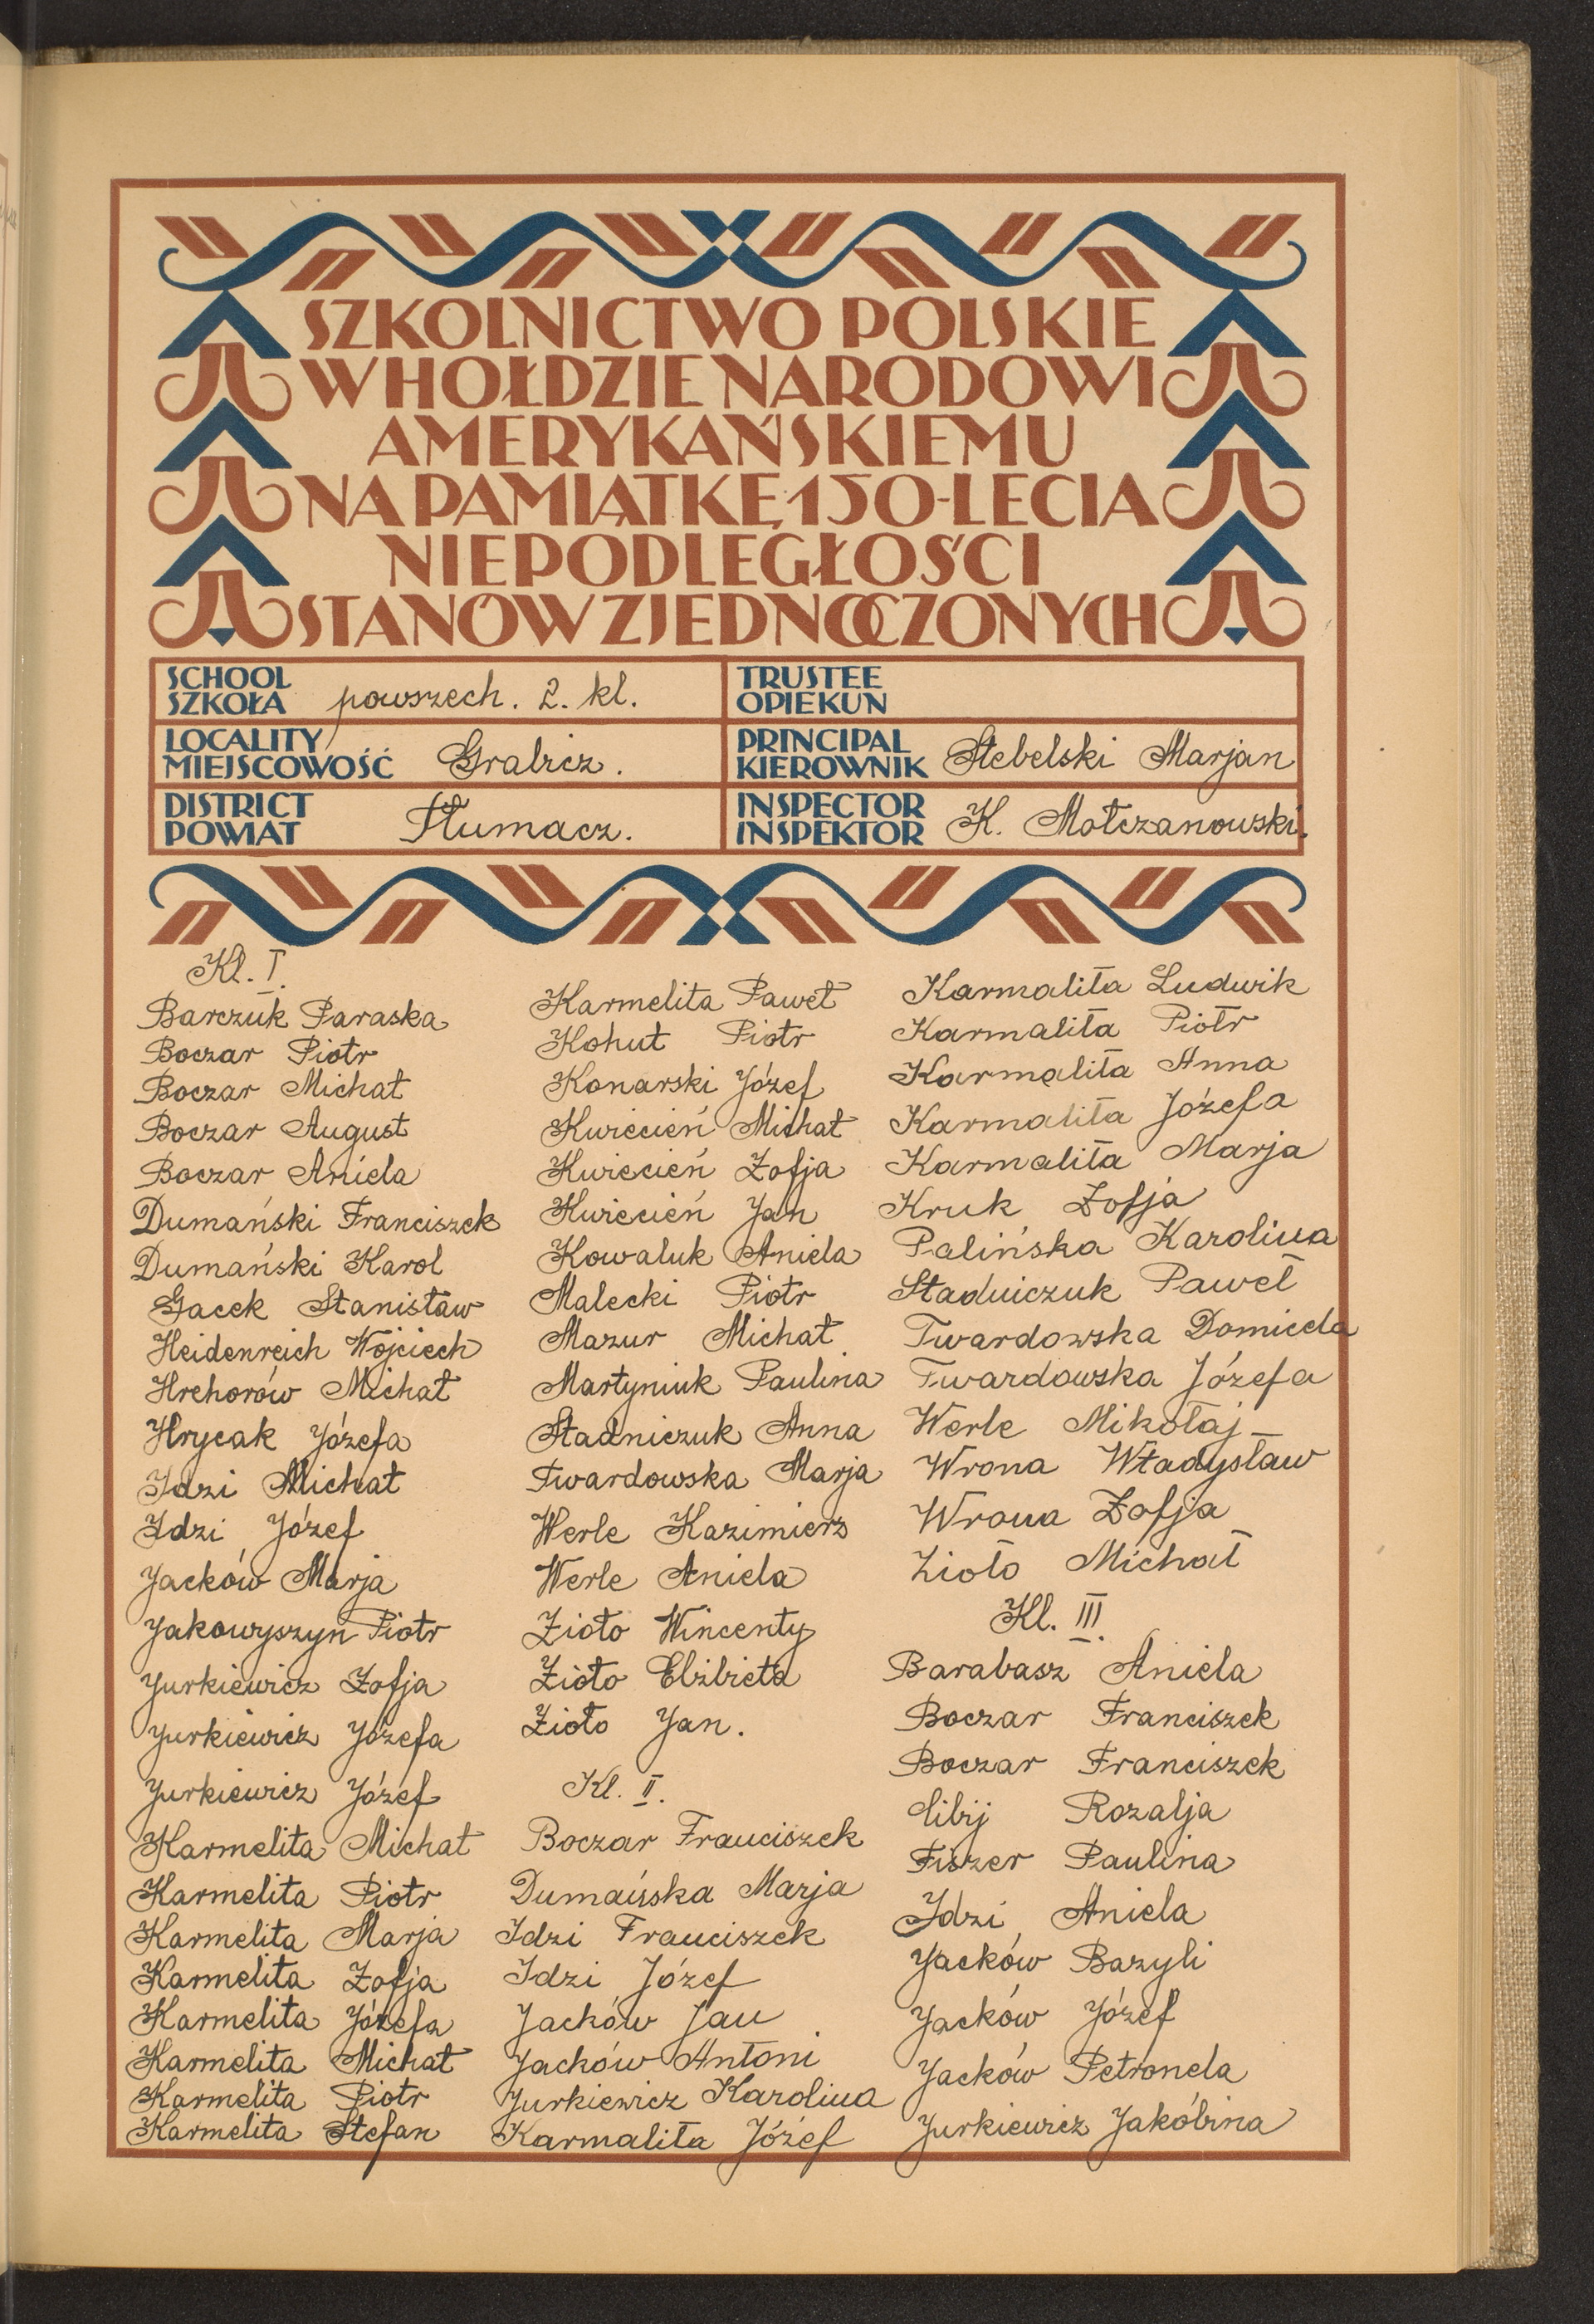 SZKOLNICTWO POLSKIE
W HOŁDZIE NARODOWI
AMERYKAŃSKIEMU
NA PAMIĄTKĘ 150-LECIA
NIEPODLEGŁOŚCI
STANÓW ZJEDNOCZONYCH
SCHOOL
SZKOŁA powszech. 2. kl.
TRUSTEE
OPIEKUN
LOCALITY
MIEJSCOWOŚĆ Grabicz.
PRINCIPAL
KIEROWNIK Stebelski Marjan
DISTRICT
POWIAT Tłumacz.
INSPECTOR
INSPEKTOR K. Mołczanowski.
Kl. I.
Barczuk Paraska
Boczar Piotr
Boczar Michał
Boczar August
Boczar Aniela
Dumański Franciszek
Dumański Karol
Gacek Stanisław
Heidenreich Wojciech
Hrehorów Michał
Hrycak Józefa
Idzi Michał
Idzi Józef
Jacków Marja
Jakowyszyn Piotr
Jurkiewicz Zofja
Jurkiewicz Józefa
Jurkiewicz Józef
Karmelita Michał
Karmelita Piotr
Karmelita Marja
Karmelita Zofja
Karmelita Józefa
Karmelita Michał
Karmelita Piotr
Karmelita Stefan
Karmelita Paweł
Kohut Piotr
Konarski Józef
Kwiecień Michał
Kwiecień Zofja
Kwiecień Jan
Kowaluk Aniela
Malecki Piotr
Mazur Michał
Martyniuk Paulina
Stadniczuk Anna
Twardowska Marja
Werle Kazimierz
Werle Aniela
Zioło Wincenty
Zioło Elżbieta
Zioło Jan.
Kl. II.
Boczar Franciszek
Dumańska Marja
Idzi Franciszek
Idzi Józef
Jacków Jan
Jacków Antoni
Jurkiewicz Karolina
Karmalita Józef
Karmalita Ludwik
Karmalita Piotr
Karmalita Anna
Karmalita Józefa
Karmalita Marja
Kruk Zofja
Palińska Karolina
Stadniczuk Paweł
Twardowska Domicela
Twardowska Józefa
Werle Mikołaj
Wrona Władysław
Wrona Zofja
Zioło Michał
Kl. III.
Barabasz Aniela
Boczar Franciszek
Boczar Franciszek
Rozalja
Fiszer Paulina
Idzi Aniela
Jacków Bazyli
Jacków Józef
Jacków Petronela
Jurkiewicz Jakóbina